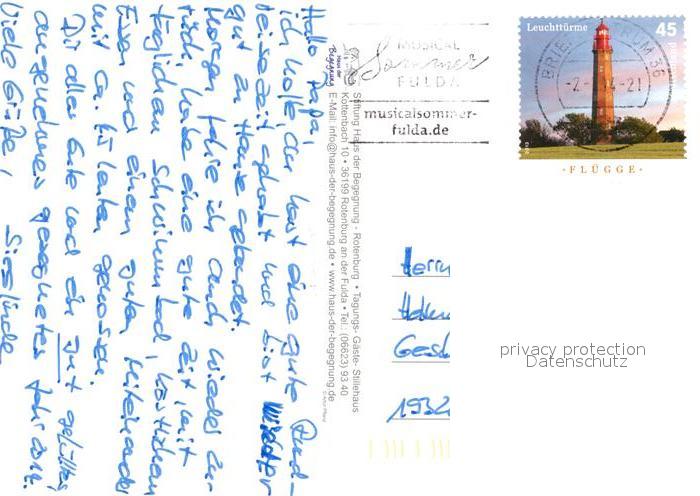 Hallo Papa,
ich hoffe du hast eine gute Rück-
reisezeit gehabt und bist wieder
gut zu Hause gelandet.
Morgen fahre ich auch wieder zu-
rück, habe eine gute Zeit mit
täglichem Schwimmbad, köstlichem
Essen und einem guten Miteinander
mit ca. 15 Leuten genossen.
Dir alles Gute und ein gut gefülltes,
ausgezeichnetes gesegnetes Jahr 2014.
Viele Grüße, Sieglinde
Haus der
BEGEGNUNG
Stiftung Haus der Begegnung - Rotenburg • Tagungs- Gäste- Stillehaus
Kottenbach 10 • 36199 Rotenburg an der Fulda • Tel.: (06623) 93 40
E-Mail: info@haus-der-begegnung.de • www.haus-der-begegnung.de
MUSICAL
Sommer
FULDA
musicalsommer-
fulda.de
BRIEFZENTRUM 36
Leuchttürme 45
FLÜGGE
Herrn
1932
privacy protection
Datenschutz